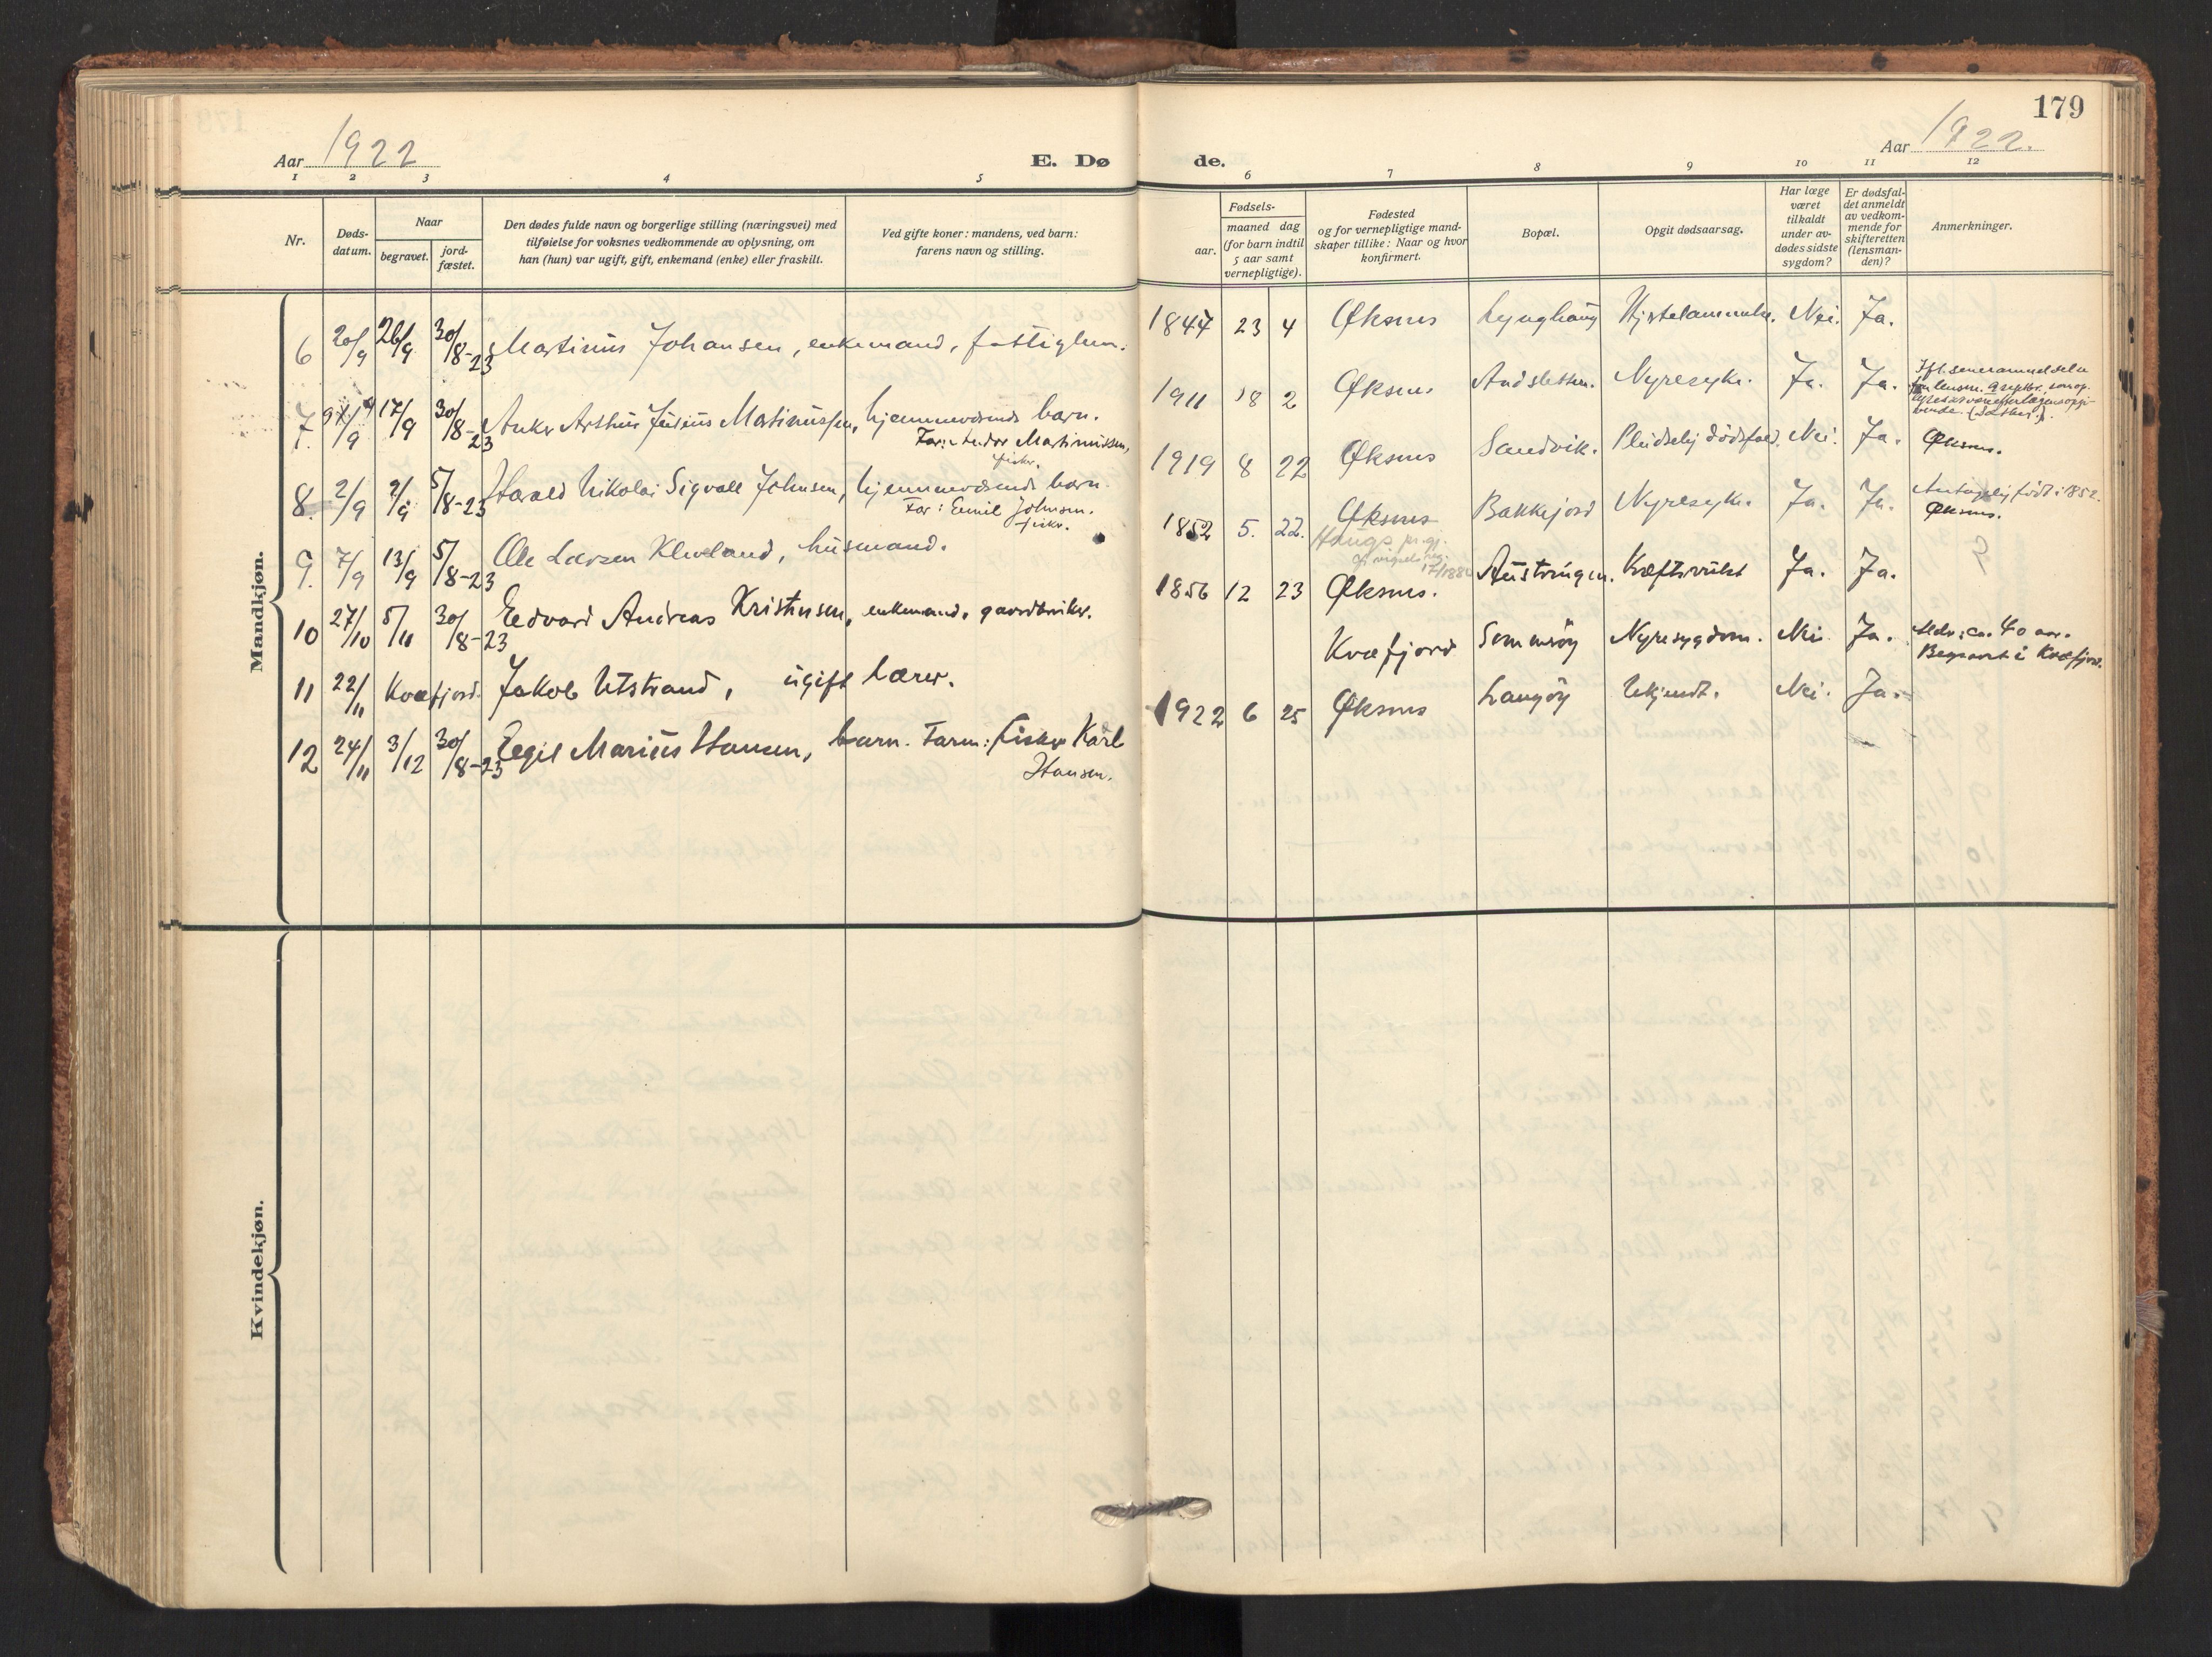 179
Aar 1922
E. Dø
de.
Aar 1922.
1 2 3 4 5
6 7 8 9 10 11 12
Nr.
Døds-
datum.
Naar
begravet.
jord-
fæstet.
Den dødes fulde navn og borgerlige stilling (næringsvei) med
tilføielse for voksnes vedkommende av oplysning, om
han (hun) var ugift, gift, enkemand (enke) eller fraskilt.
Ved gifte koner: mandens, ved barn:
farens navn og stilling.
Fødsels-
aar.
maaned dag
(for barn indtil
5 aar samt
vernepligtige).
Fødested
og for vernepligtige mand-
skaper tillike: Naar og hvor
konfirmert.
Bopæl.
Opgit dødsaarsag.
Har læge
været
tilkaldt
under av-
dødes sidste
sygdom?
Er dødsfal-
det anmeldt
av vedkom-
mende for
skifteretten
(lensman-
den)?
Anmerkninger.
Mandkjøn.
6 20/9 26/9 30/8-23 Martinus Johansen, enkemand, fattiglem. 1847 23 4 Øksnes Lynghaug Nei. Ja.
7. 9/9 17/9 30/8-23 Anker Arthur Julius Martinussen, hjemmeværende barn. 1911 18 2 Øksnes Nyresyke. Ja. Ja.
Far: Martinussen,
fisker.
8. 2/9 9/9 5/8-23 Harald Nikolai Sigvall Johnsen, hjemmeværende barn. 1919 8 22 Øksnes Sandvik. Pludselig dødsfald. Nei. Ja. Øksnes.
Far: Emil Johnsen.
fisker.
9. 7/9 13/9 5/8-23 Ole Larsen Kleveland, husmand. 1852 5. 22. Øksnes Bakkejord Nyresyke. Ja. Ja. Antagelig født i 1852.
Øksnes.
10 27/10 5/11 30/8-23 Edvard Andreas Kristensen, enkemand, gaardbruker. 1856 12 23 Øksnes. Kræftsvulst Ja. Ja.
11 22/11 Kvæfjord. Jakob Utstrand, ugift lærer. Kvæfjord Nyresygdom. Nei Ja. Alder: ca. 40 aar.
Begravet i Kvæfjord.
12 24/11 3/12 30/8-23 Egil Marius Hansen, barn. Farm: fisker Karl 1922 6 25 Øksnes Langøy Ukjendt. Nei. Ja.
Hansen.
Kvindekjøn.